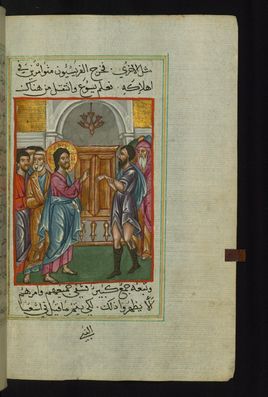 مثل الاخرى. فخرج الفريسيون متوامرين في
اهلاكه. فعلم يسوع وانتقل من هناك
وتبعه جمع كبير فشفى جميعهم وامرهم
ألا يظهروا ذلك. لكي يتم ما قيل في اشعيا
النبي